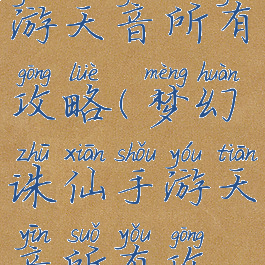 游天音所有
gōng lüè mèng huàn
攻略(梦幻
zhū xiān shǒu yóu tiān
诛仙手游天
yīn suǒ yǒu gōng
音所有攻